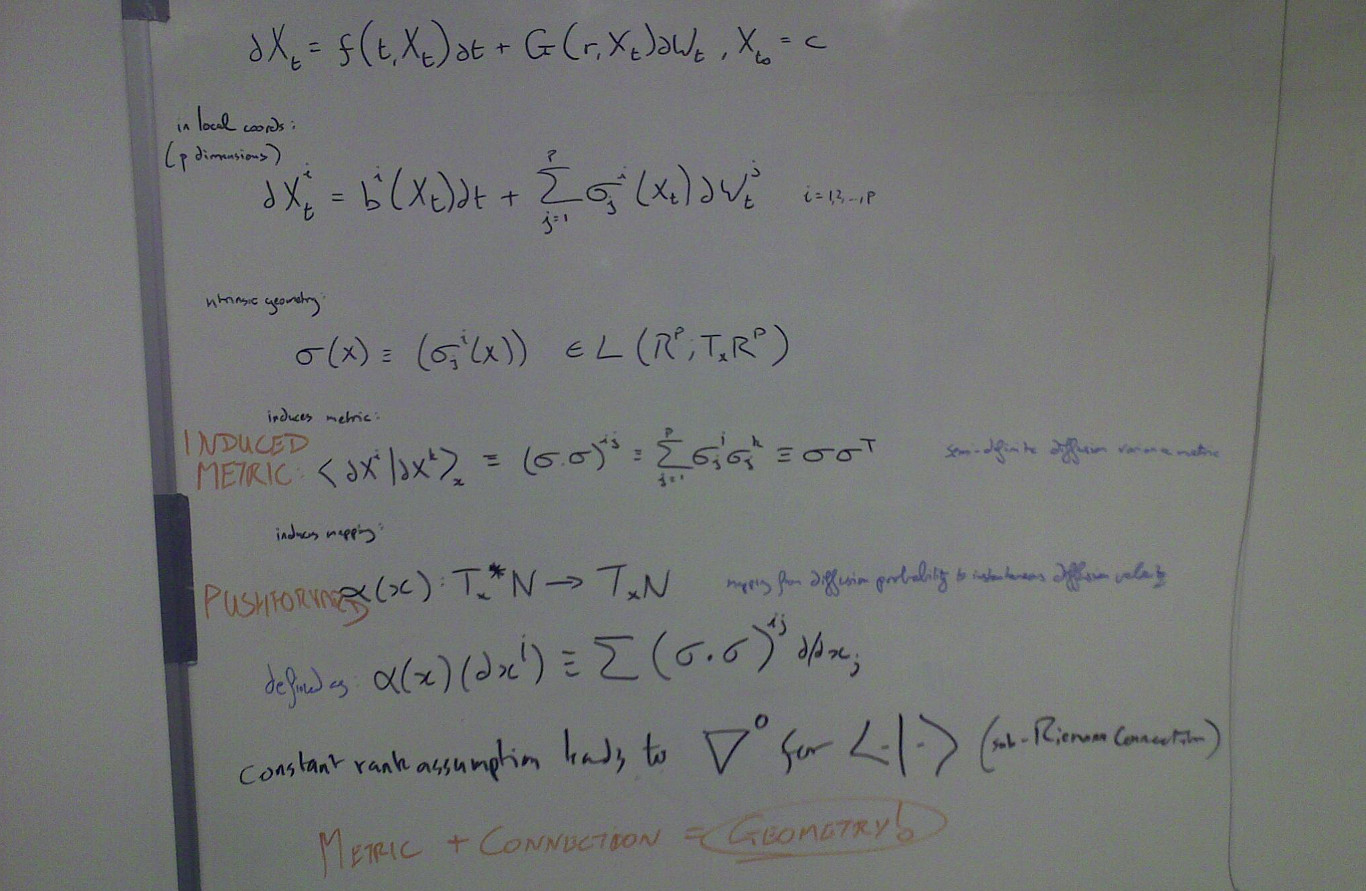 ∂X_t = f(t,X_t)∂t + G(r,X_t)∂W_t , X_t₀ = c
in local coords:
(p dimensions)
∂X_t^i = b^i(X_t)∂t + ∑_{j=1}^{p} σ_j^i(X_t)∂W_t^j i=1,2,...,p
ntrinsic geometry:
σ(x) ≡ (σ_j^i(x)) ∈ L(R^p; T_xR^p)
induces metric:
INDUCED
METRIC: <∂X^i|∂X^k>_x ≡ (σ.σ)^{ij} ≡ ∑_{j=1}^{p} σ_j^i σ_j^k ≡ σσ^T semi-definite diffusion variance metric
induces mapping:
PUSHFORWARD α(x): T_x*N → T_xN mapping from diffusion probability to instantaneous diffusion velocity
defined as: α(x)(∂x^i) ≡ ∑(σ.σ)^{ij} ∂/∂x_j
Constant rank assumption leads to ∇^0 for <.|.> (sub-Rieman Connection)
METRIC + CONNECTION = GEOMETRY!